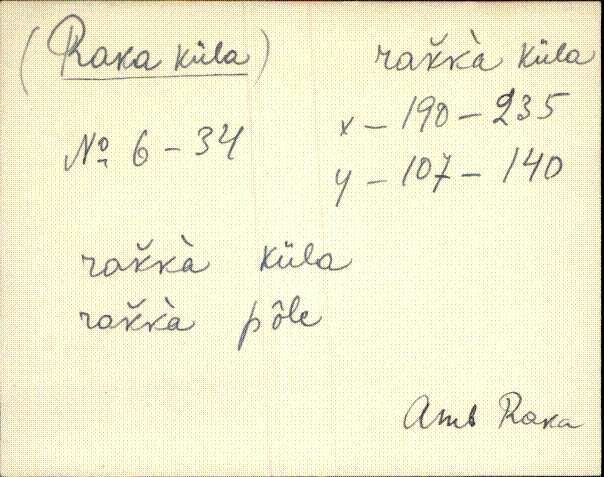 (Raka küla) rak̆kà küla
x – 190 – 235
No 6 – 34
y – 107 – 140
rak̆kà küla
rak̆kà pôle
Amb Raka